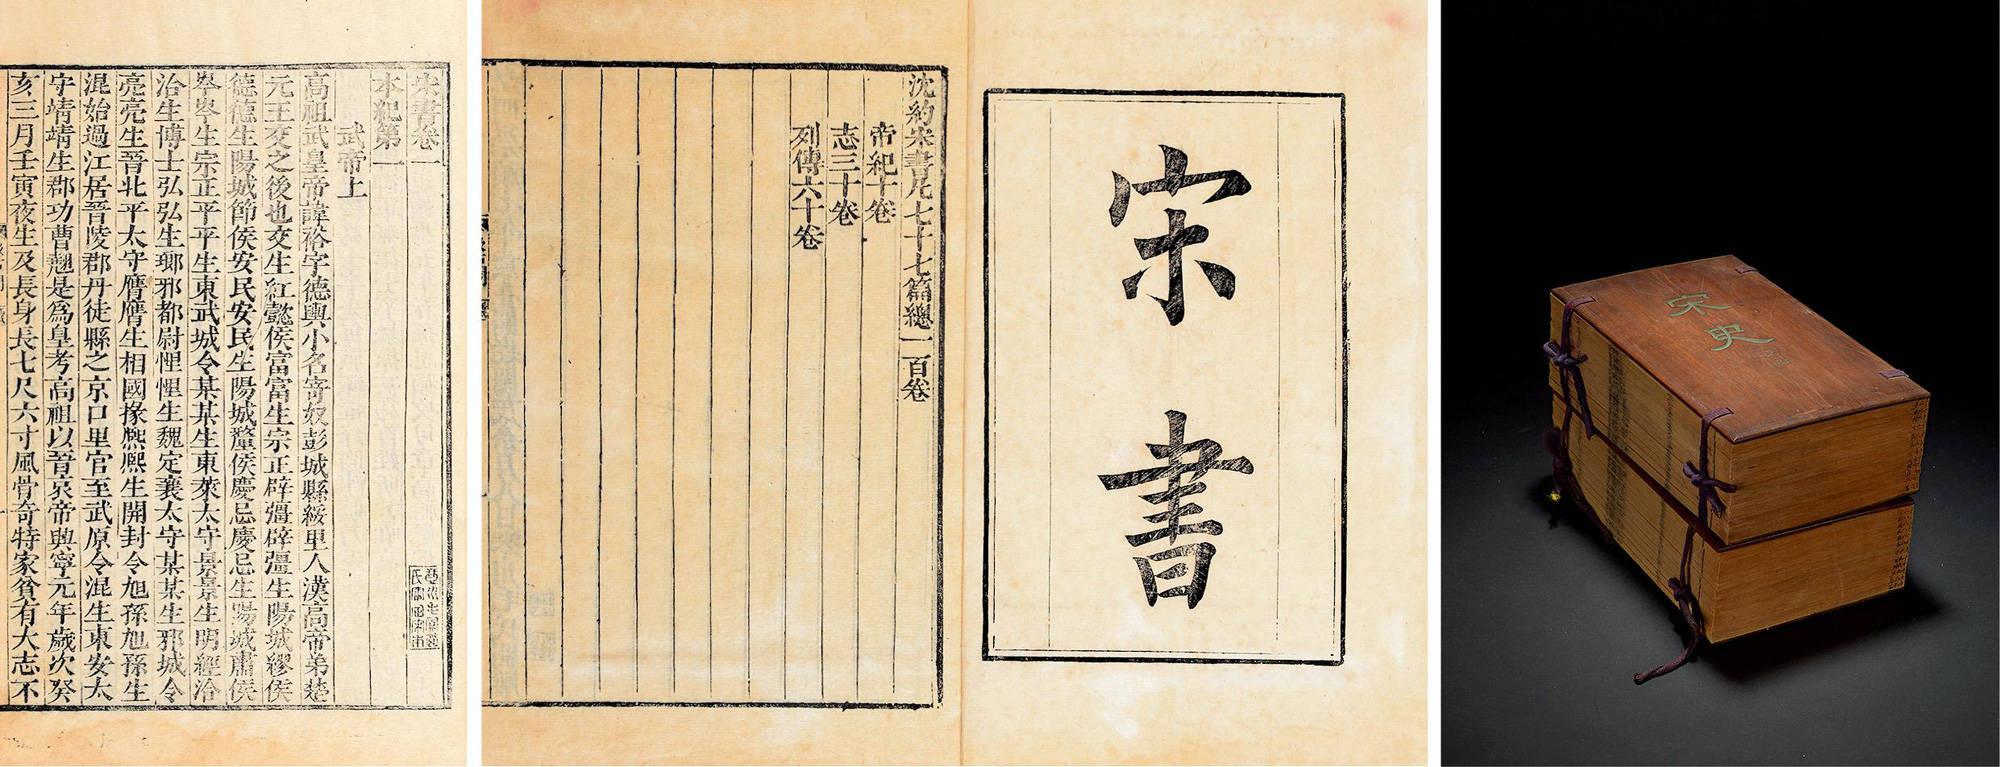 宋書卷一
本紀第一
武帝上
高祖武皇帝諱裕字德輿小名寄奴彭城縣綏里人漢高帝弟楚
元王交之後也交生紅懿侯富富生宗正辟彊辟彊生陽城繆侯
德德生陽城節侯安民安民生陽城釐侯慶忌慶忌生陽城肅侯
岑岑生宗正平平生東武城令某某生東萊太守景景生明經洽
洽生博士弘弘生瑯邪都尉悝悝生魏定襄太守某某生邪城令
亮亮生晉北平太守膺膺生相國掾熈熈生開封令旭孫旭孫生
混始過江居晉陵郡丹徒縣之京口里官至武原令混生東安太
守靖靖生郡功曹翹是爲皇考高祖以晉哀帝興寧元年歲次癸
亥三月壬寅夜生及長身長七尺六寸風骨奇特家貧有大志不
宋書
沈約宋書凡七十七篇總一百卷
帝紀十卷
志三十卷
列傳六十卷
宋史